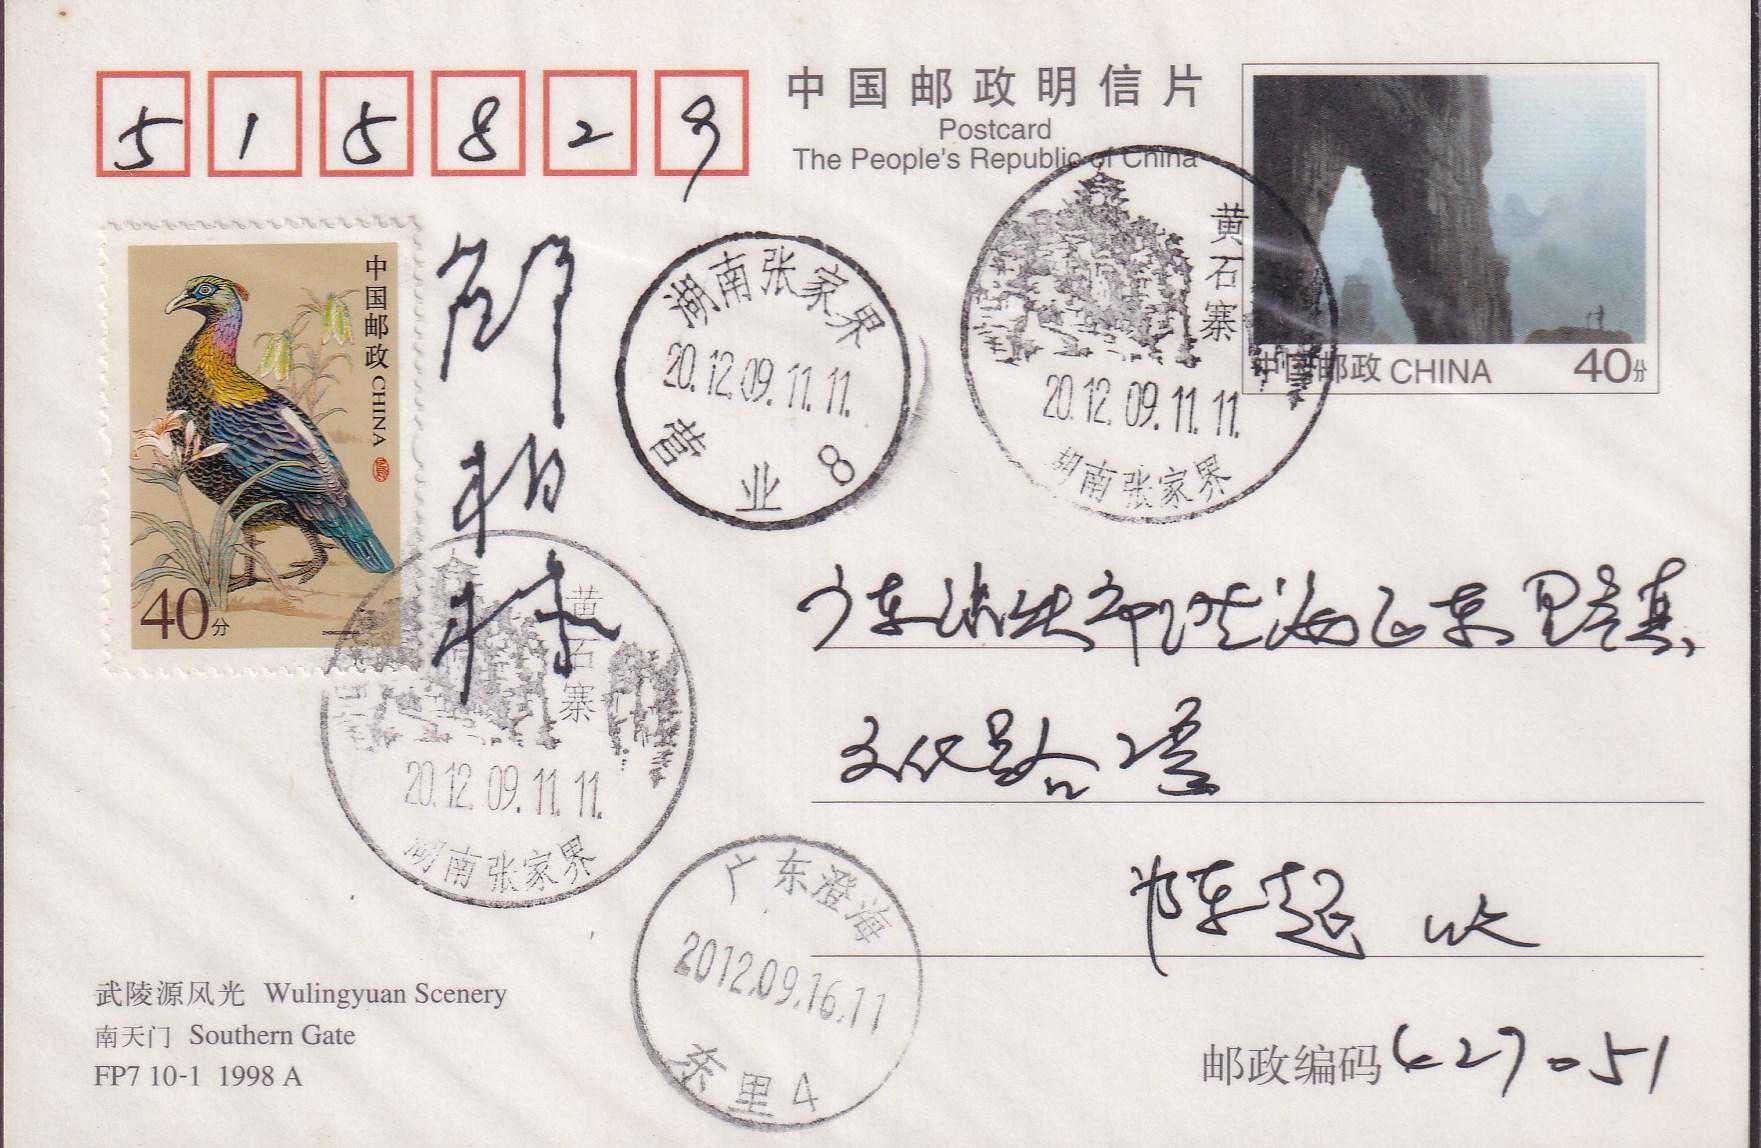 515829
中国邮政明信片
Postcard
The People's Republic of China
中国邮政 CHINA
40分
中国邮政 CHINA
40分
湖南张家界
20.12.09.11.11.
营业 8
黄石寨
20.12.09.11.11.
湖南张家界
黄石寨
20.12.09.11.11.
湖南张家界
广东汕头市澄海区东里镇
文化路
陈超 收
广东澄海
2012.09.16.11
东里4
武陵源风光 Wulingyuan Scenery
南天门 Southern Gate
FP7 10-1 1998 A
邮政编码 427051